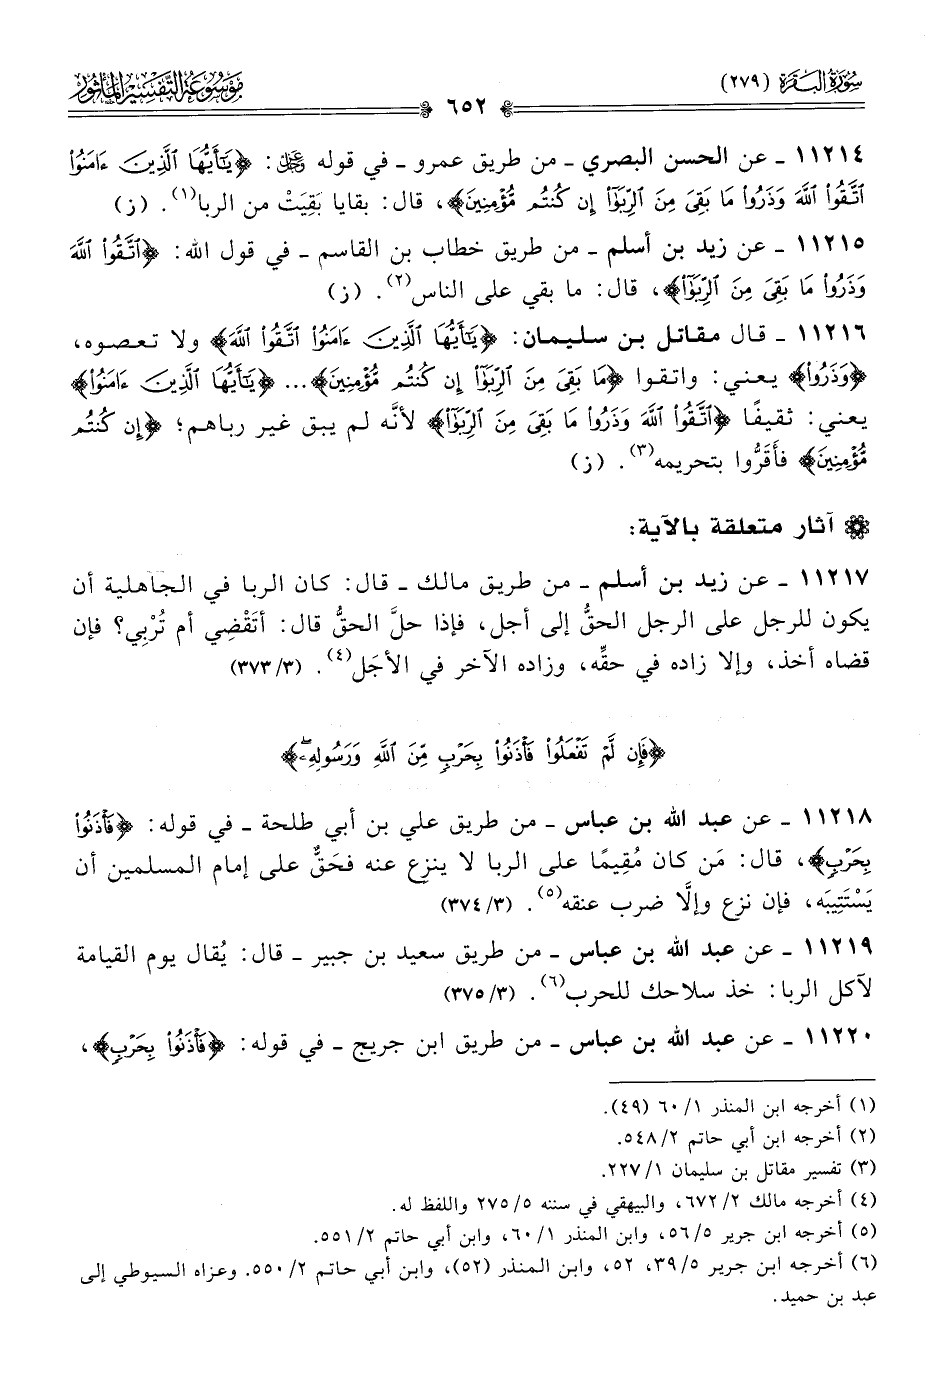 سُورَةُ البَقَرَةِ (٢٧٩)
٦٥٢
مَوْسُوعَةُ التَّفْسِيرِ المَأْثُورِ
١١٢١٤ ـ عن الحسن البصري ـ من طريق عمرو ـ في قوله ﷿: ﴿يَٰٓأَيُّهَا ٱلَّذِينَ ءَامَنُوا۟
ٱتَّقُوا۟ ٱللَّهَ وَذَرُوا۟ مَا بَقِىَ مِنَ ٱلرِّبَوٰٓا۟ إِن كُنتُم مُّؤْمِنِينَ﴾، قال: بقايا بَقِيَتْ من الربا(١). (ز)
١١٢١٥ ـ عن زيد بن أسلم ـ من طريق خطاب بن القاسم ـ في قول الله: ﴿ٱتَّقُوا۟ ٱللَّهَ
وَذَرُوا۟ مَا بَقِىَ مِنَ ٱلرِّبَوٰٓا۟﴾، قال: ما بقي على الناس(٢). (ز)
١١٢١٦ ـ قال مقاتل بن سليمان: ﴿يَٰٓأَيُّهَا ٱلَّذِينَ ءَامَنُوا۟ ٱتَّقُوا۟ ٱللَّهَ﴾ ولا تعصوه،
﴿وَذَرُوا۟﴾ يعني: واتقوا ﴿مَا بَقِىَ مِنَ ٱلرِّبَوٰٓا۟ إِن كُنتُم مُّؤْمِنِينَ﴾... ﴿يَٰٓأَيُّهَا ٱلَّذِينَ ءَامَنُوا۟﴾
يعني: ثقيفًا ﴿ٱتَّقُوا۟ ٱللَّهَ وَذَرُوا۟ مَا بَقِىَ مِنَ ٱلرِّبَوٰٓا۟﴾ لأنَّه لم يبق غير رباهم؛ ﴿إِن كُنتُم
مُّؤْمِنِينَ﴾ فأَقَرُّوا بتحريمه(٣). (ز)
آثار متعلقة بالآية:
١١٢١٧ ـ عن زيد بن أسلم ـ من طريق مالك ـ قال: كان الربا في الجاهلية أن
يكون للرجل على الرجل الحقُّ إلى أجل، فإذا حلَّ الحقُّ قال: أتَقْضِي أم تُرْبِي؟ فإن
قضاه أخذ، وإلا زاده في حقِّه، وزاده الآخر في الأجَل(٤). (٣/ ٣٧٣)
﴿فَإِن لَّمْ تَفْعَلُوا۟ فَأْذَنُوا۟ بِحَرْبٍ مِّنَ ٱللَّهِ وَرَسُولِهِۦ ۖ﴾
١١٢١٨ ـ عن عبد الله بن عباس ـ من طريق علي بن أبي طلحة ـ في قوله: ﴿فَأْذَنُوا۟
بِحَرْبٍ﴾، قال: مَن كان مُقِيمًا على الربا لا ينزع عنه فحَقٌّ على إمام المسلمين أن
يَسْتَتِيبَه، فإن نزع وإلَّا ضرب عنقه(٥). (٣/ ٣٧٤)
١١٢١٩ ـ عن عبد الله بن عباس ـ من طريق سعيد بن جبير ـ قال: يُقال يوم القيامة
لآكل الربا: خذ سلاحك للحرب(٦). (٣/ ٣٧٥)
١١٢٢٠ ـ عن عبد الله بن عباس ـ من طريق ابن جريج ـ في قوله: ﴿فَأْذَنُوا۟ بِحَرْبٍ﴾،
(١) أخرجه ابن المنذر ١/ ٦٠ (٤٩).
(٢) أخرجه ابن أبي حاتم ٢/ ٥٤٨.
(٣) تفسير مقاتل بن سليمان ١/ ٢٢٧.
(٤) أخرجه مالك ٢/ ٦٧٢، والبيهقي في سننه ٥/ ٢٧٥ واللفظ له.
(٥) أخرجه ابن جرير ٥/ ٥٦، وابن المنذر ١/ ٦٠، وابن أبي حاتم ٢/ ٥٥١.
(٦) أخرجه ابن جرير ٥/ ٣٩، ٥٢، وابن المنذر (٥٢)، وابن أبي حاتم ٢/ ٥٥٠. وعزاه السيوطي إلى
عبد بن حميد.